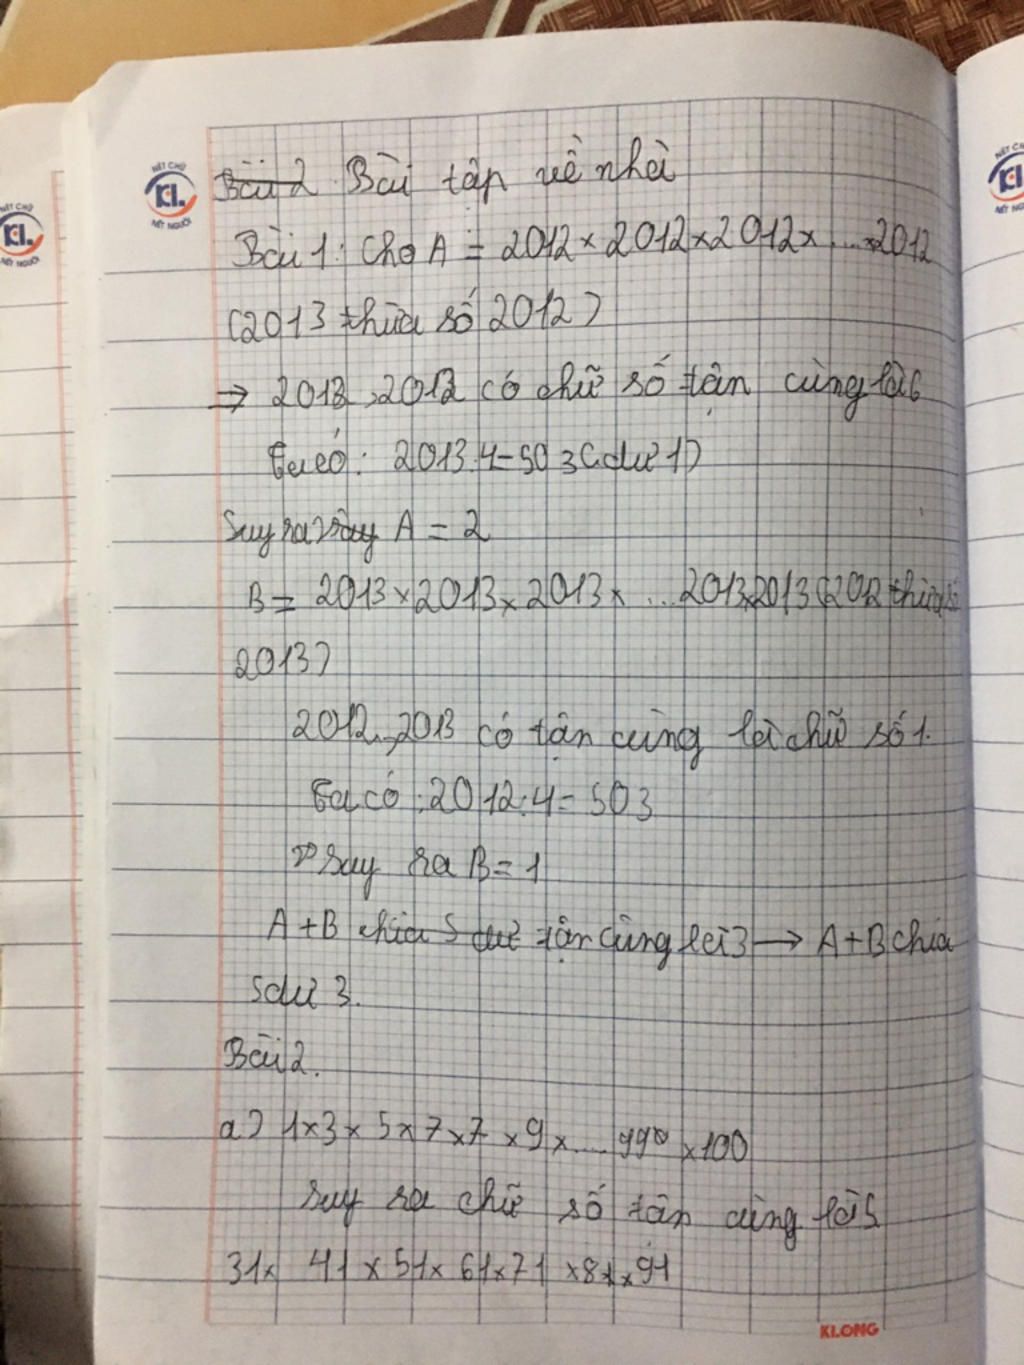 NÉT CHỮ
KL
NẾT NGƯỜI
Bài 2 Bài tập về nhà
Bài 1: Cho A = 2012 x 2012 x 2012 x ... x 2012
(2013 thừa số 2012)
→ 2012, 2012 có chữ số tận cùng là 6
Ta có: 2013:4=503(dư 1)
Suy ra vậy A = 2
B = 2013 x 2013 x 2013 x ... 2013 x 2013 (2012 thừa số
2013)
2012, 2013 có tận cùng là chữ số 1.
Ta có: 2012:4=503
suy ra B = 1
A+B chia 5 dư tận cùng là 3 → A+B chia
5 dư 3.
Bài 2.
a) 1 x 3 x 5 x 7 x 7 x 9 x ... 99 x 100
suy ra chữ số tận cùng là 5
31 x 41 x 51 x 61 x 71 x 81 x 91
KLONG